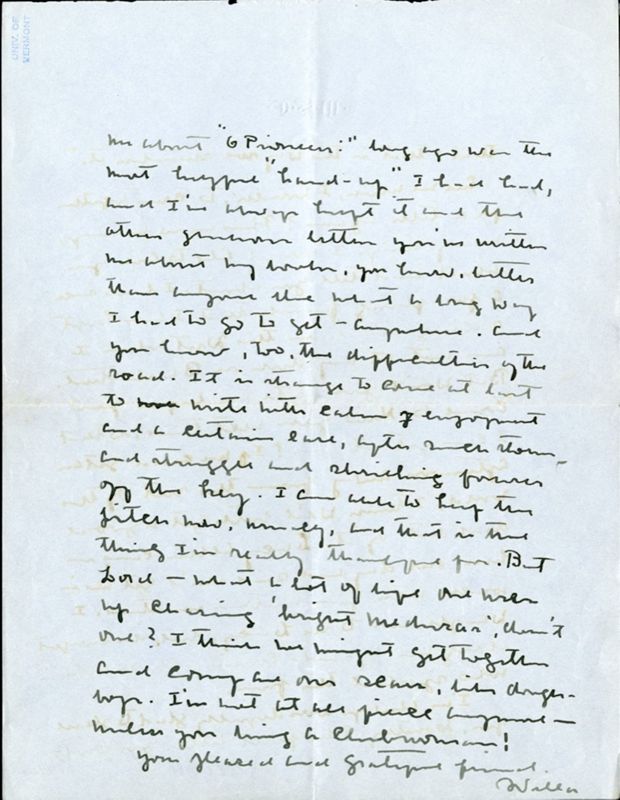 UNIV. OF
VERMONT
me about "O Pioneers!" long ago was the
most helpful "hand-up" I had had,
and I've always kept it and the
other generous letters you've written
me about my books, you know, better
than anyone else what a long way
I had to go to get - anywhere. And
you know, too, the difficulties of the
road. It is strange to come at last
to write with calm enjoyment
and a certain ease, after such storm
and struggle and shrieking forever
off the key. I am able to keep the
pitch now, usually, and that is the
thing I'm really thankful for. But
Lord - what a lot of life one uses
up chasing 'bright Medusas', don't
one? I think we might get together
and compare our scars, like dough-
boys. I'm not at all fierce anymore -
unless you bring a clubwoman!
Your pleased and grateful friend
Willa